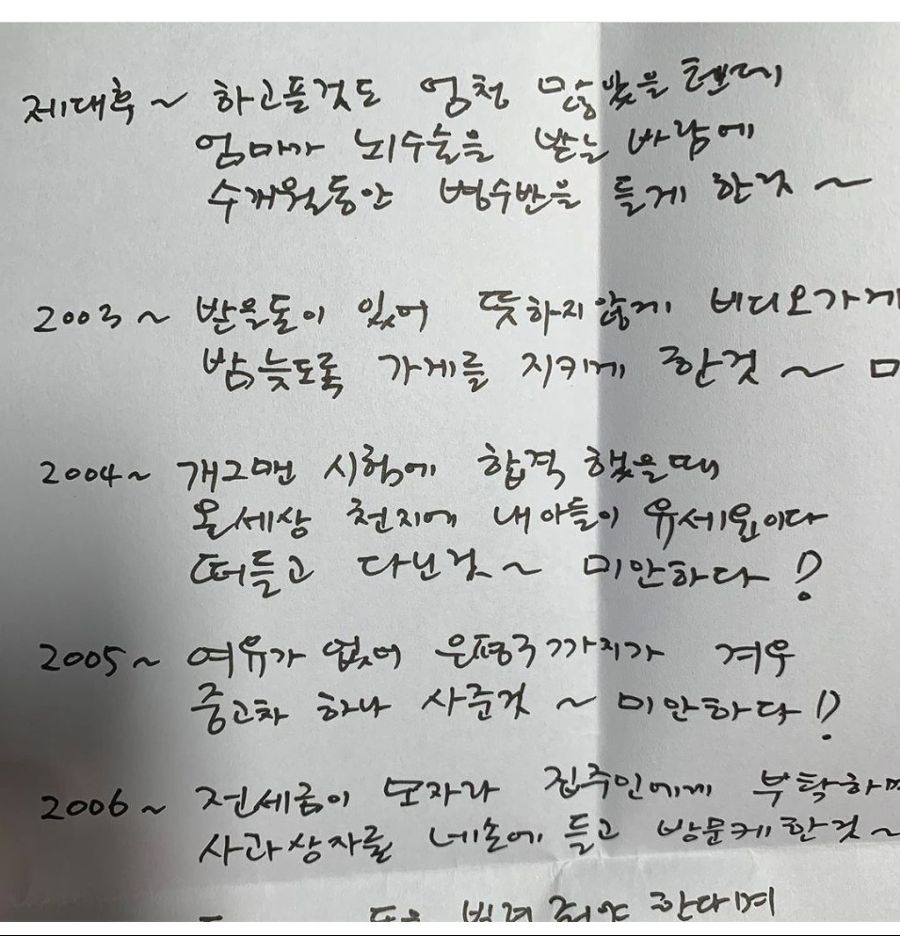 제대후~ 하고픈것도 엄청 많았을텐데
엄마가 뇌수술을 받는 바람에
수개월동안 병수반을 들게 한것~
2003~ 받을돈이 있어 뜻하지않게 비디오가게
밤늦도록 가게를 지키게 한것~ 미
2004~ 개그맨 시험에 합격 했을때
온세상 천지에 내아들이 유세윤이다
떠들고 다닌것~ 미안하다!
2005~ 여유가 없어 은평구까지가 겨우
중고차 하나 사준것~ 미안하다!
2006~ 전세금이 모자라 집주인에게 부탁하며
사과상자를 네손에 들고 방문케한것~
한다며